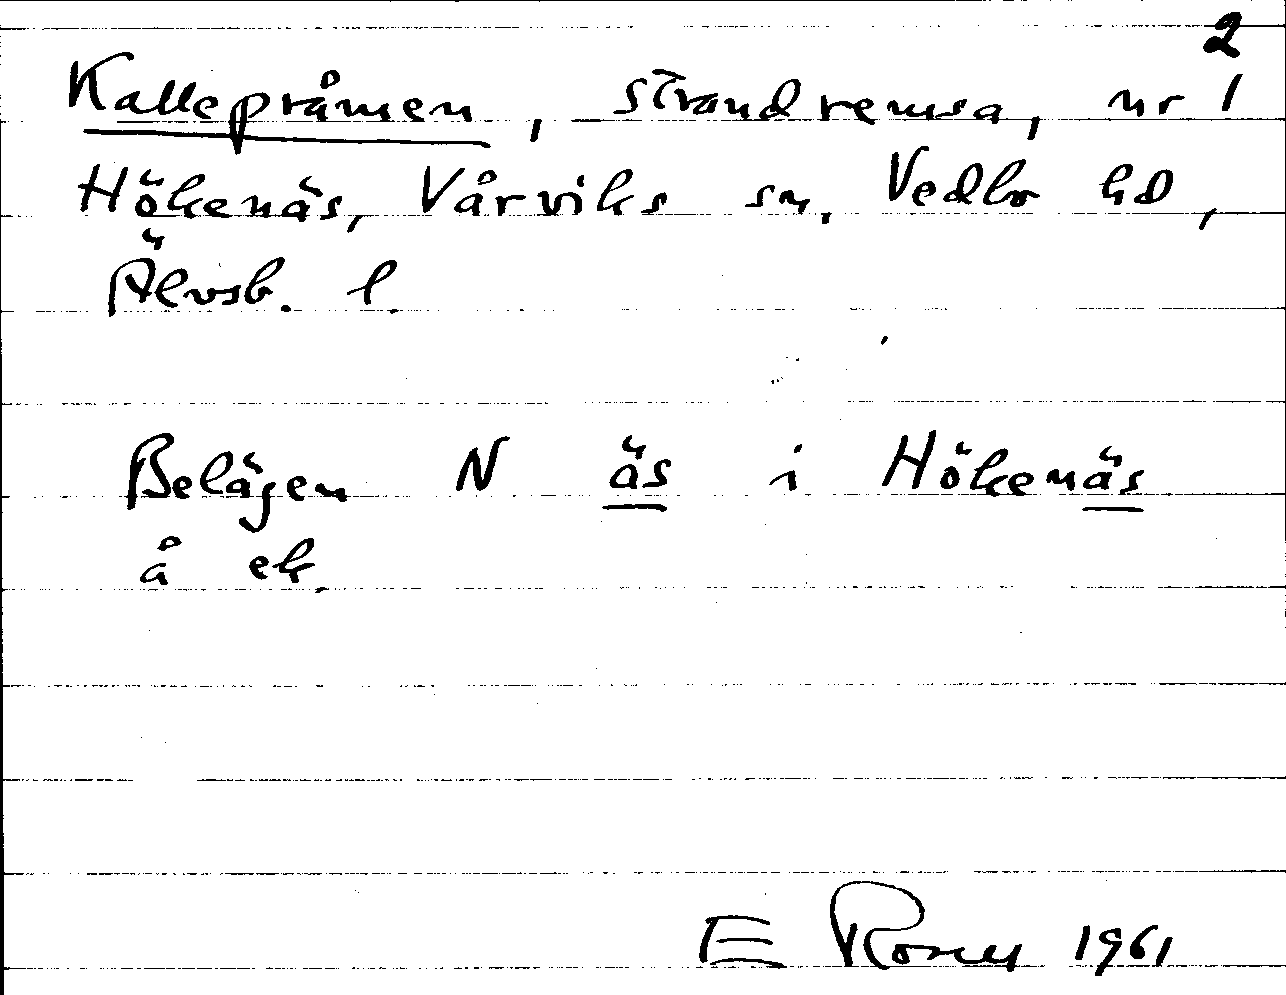 2
Kallepråmen, strandremsa, nr 1
Hökenäs, Vårviks sn, Vedbo hd,
Älvsb. l.
Belägen N äs i Hökenäs
å ek.
E Rosell 1961